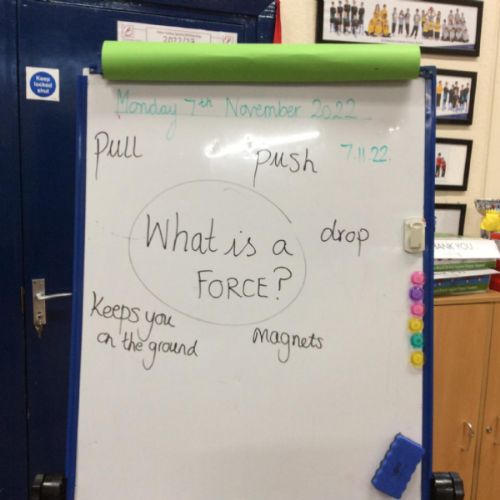 2022/23
Keep
locked
shut
Monday 7th November 2022
7.11.22.
Pull
Push
What is a
FORCE?
drop
Keeps you
on the ground
Magnets
ANK YOU